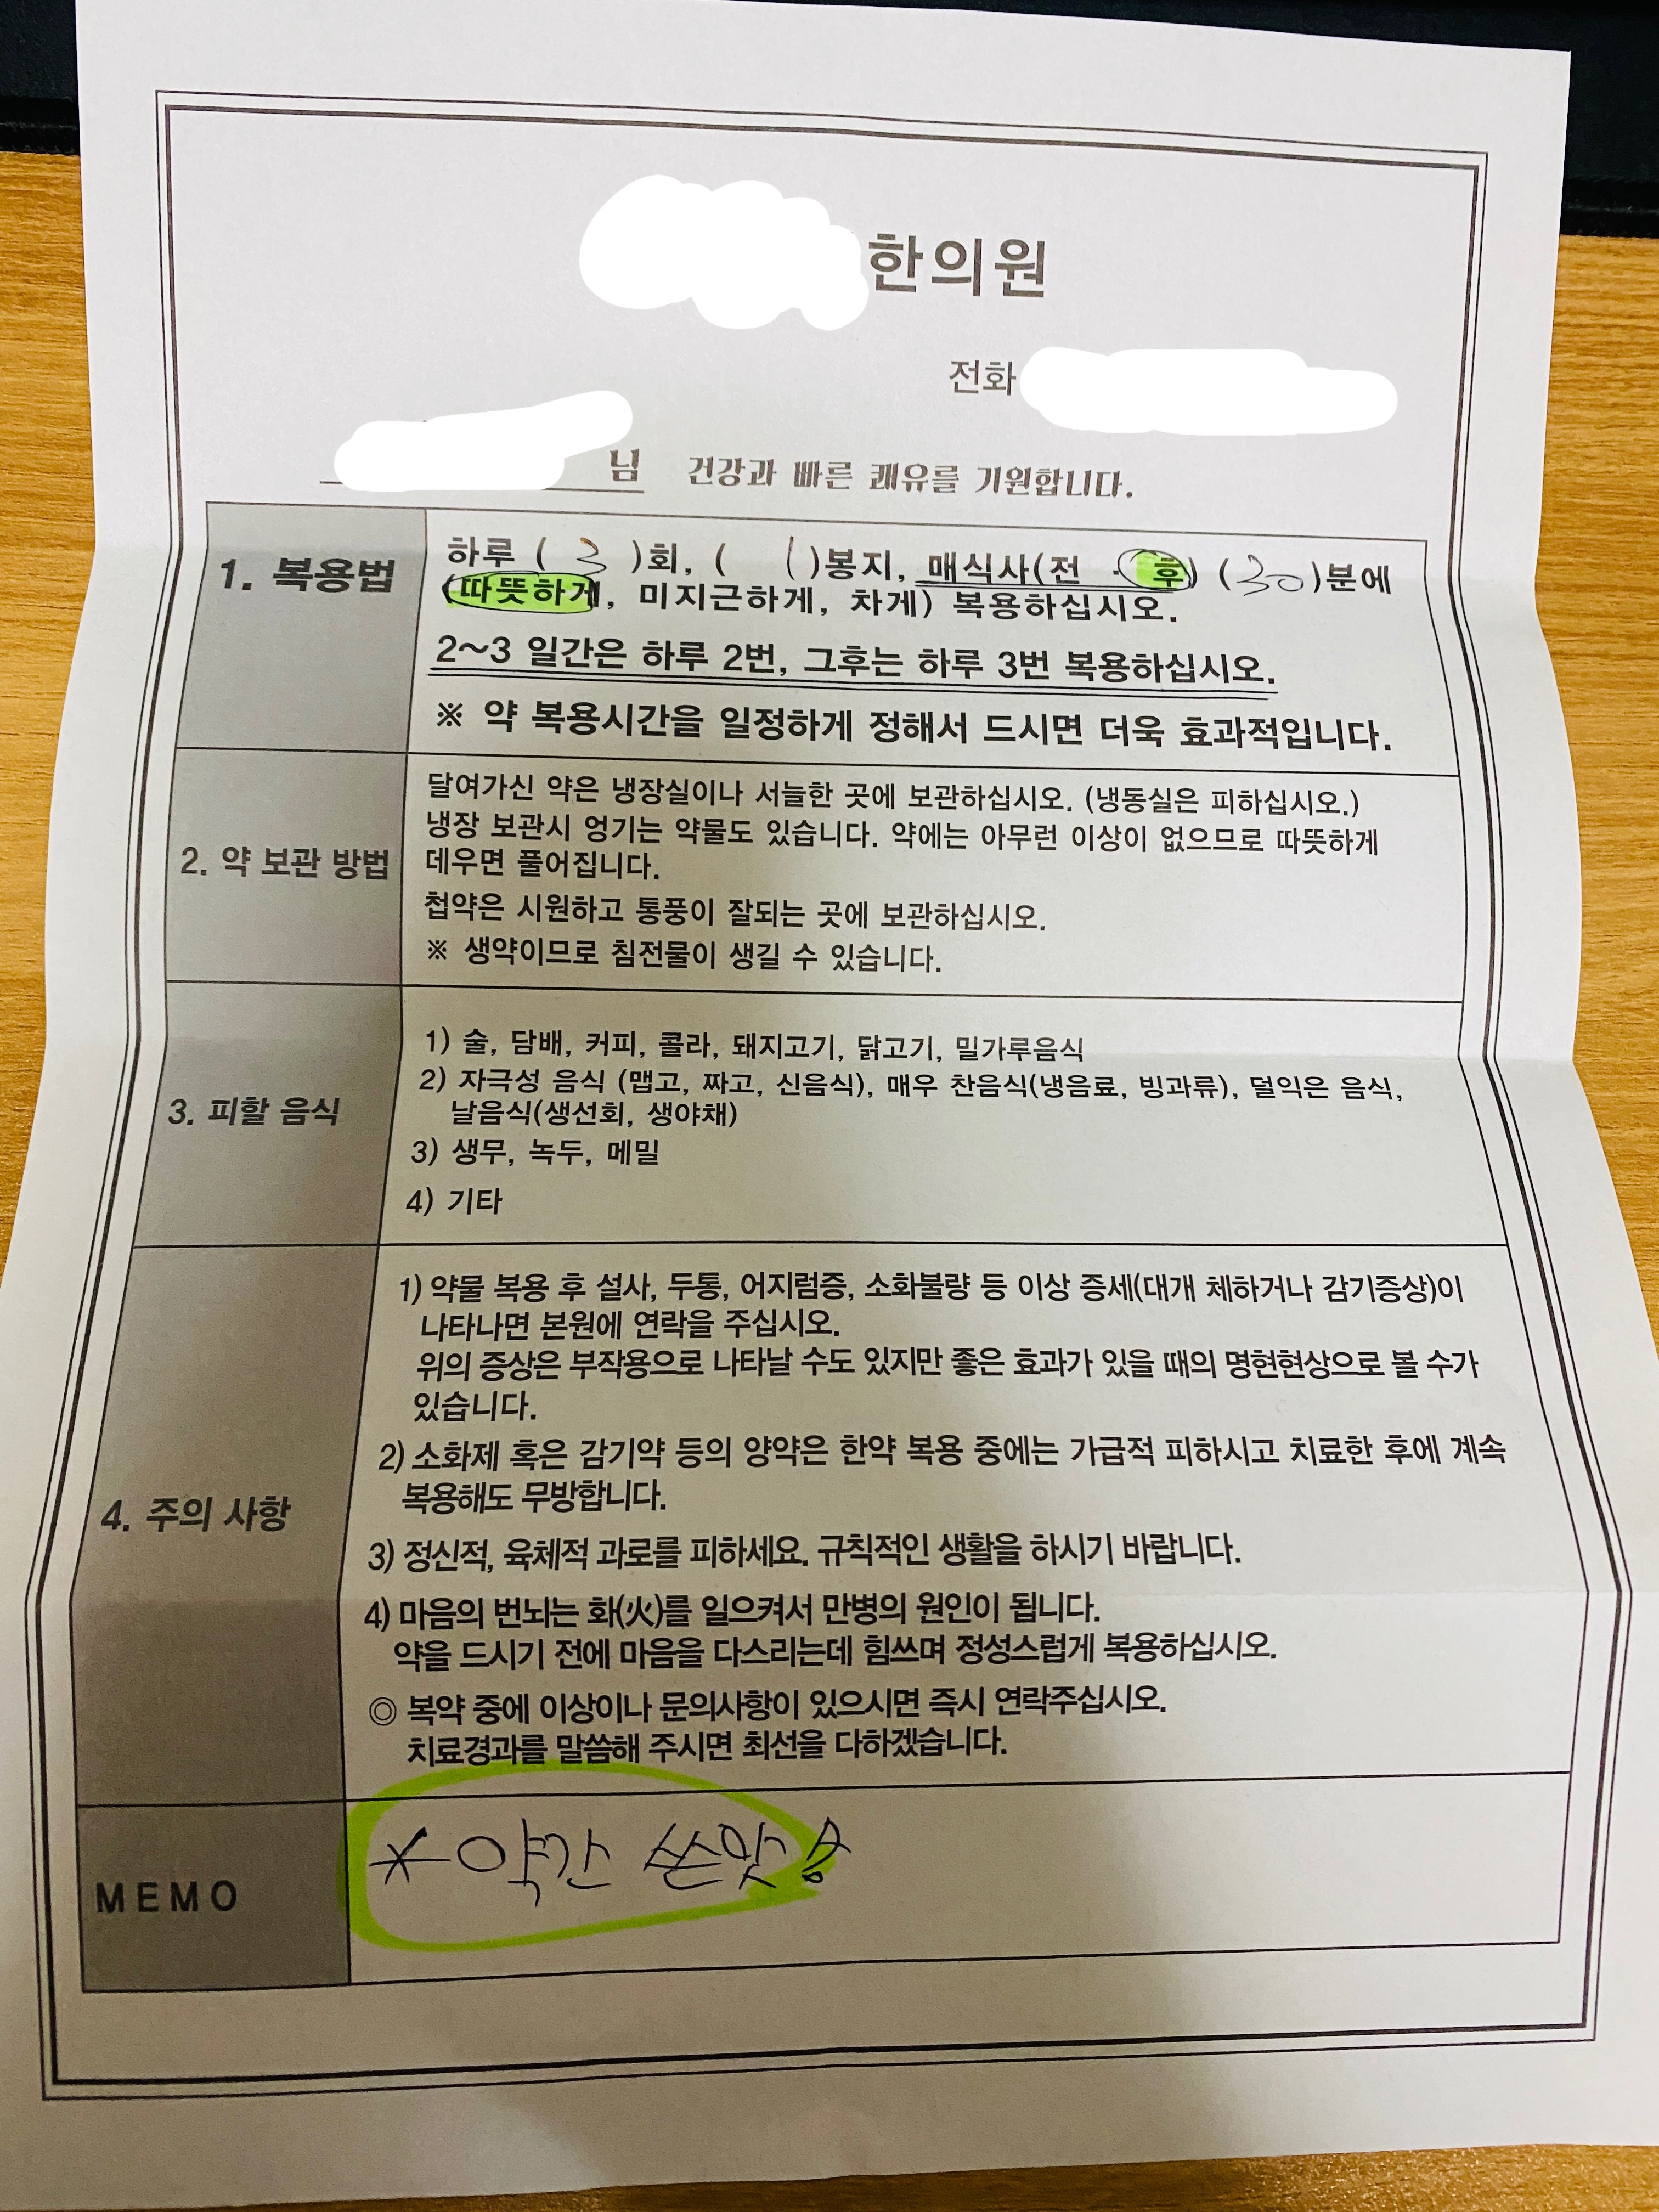 한의원
전화
님 건강과 빠른 쾌유를 기원합니다.
1. 복용법
하루 ( 3 )회, ( 1 )봉지, 매식사(전 · 후) (30)분에
(따뜻하게, 미지근하게, 차게) 복용하십시오.
2~3 일간은 하루 2번, 그후는 하루 3번 복용하십시오.
※ 약 복용시간을 일정하게 정해서 드시면 더욱 효과적입니다.
2. 약 보관 방법
달여가신 약은 냉장실이나 서늘한 곳에 보관하십시오. (냉동실은 피하십시오.)
냉장 보관시 엉기는 약물도 있습니다. 약에는 아무런 이상이 없으므로 따뜻하게
데우면 풀어집니다.
첩약은 시원하고 통풍이 잘되는 곳에 보관하십시오.
※ 생약이므로 침전물이 생길 수 있습니다.
3. 피할 음식
1) 술, 담배, 커피, 콜라, 돼지고기, 닭고기, 밀가루음식
2) 자극성 음식 (맵고, 짜고, 신음식), 매우 찬음식(냉음료, 빙과류), 덜익은 음식,
날음식(생선회, 생야채)
3) 생무, 녹두, 메밀
4) 기타
4. 주의 사항
1) 약물 복용 후 설사, 두통, 어지럼증, 소화불량 등 이상 증세(대개 체하거나 감기증상)이
나타나면 본원에 연락을 주십시오.
위의 증상은 부작용으로 나타날 수도 있지만 좋은 효과가 있을 때의 명현현상으로 볼 수가
있습니다.
2) 소화제 혹은 감기약 등의 양약은 한약 복용 중에는 가급적 피하시고 치료한 후에 계속
복용해도 무방합니다.
3) 정신적, 육체적 과로를 피하세요. 규칙적인 생활을 하시기 바랍니다.
4) 마음의 번뇌는 화(火)를 일으켜서 만병의 원인이 됩니다.
약을 드시기 전에 마음을 다스리는데 힘쓰며 정성스럽게 복용하십시오.
◎ 복약 중에 이상이나 문의사항이 있으시면 즉시 연락주십시오.
치료경과를 말씀해 주시면 최선을 다하겠습니다.
MEMO
* 약간 쓴맛